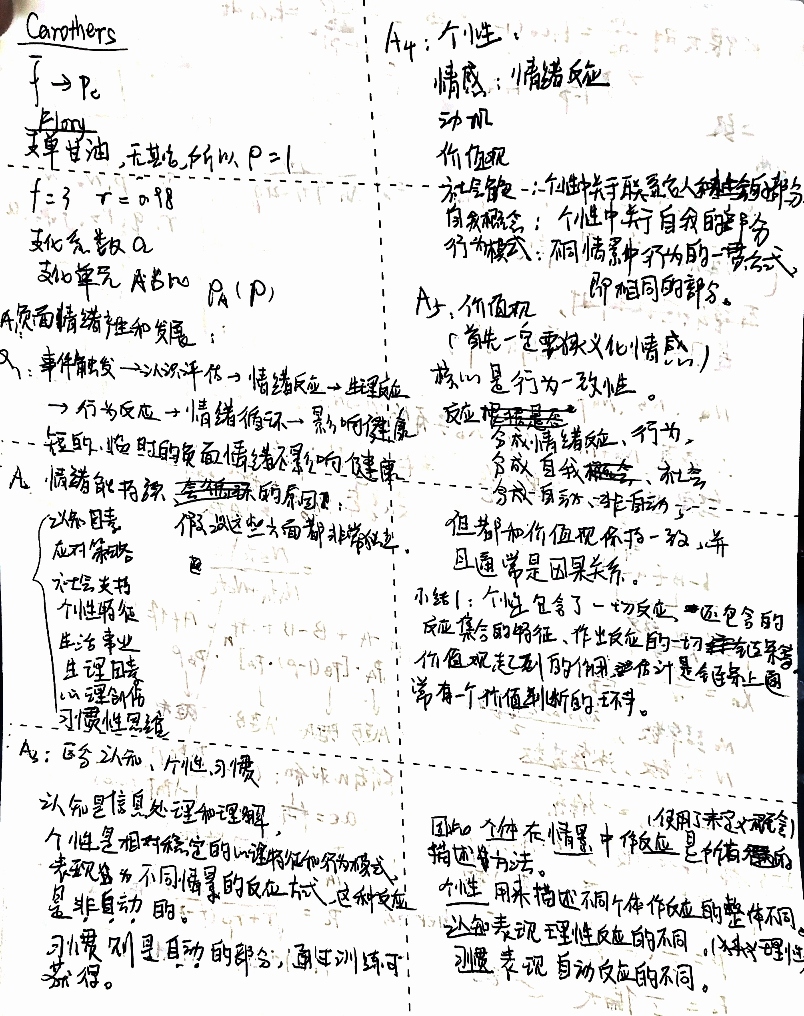 Carothers
f̄ → Pc
Flory
单甘油,无其它,所以 P=1
f=3 r=0.98
支化系数 α
支化单元 PA(P)
A负面情绪产生和发展:
A1:事件触发→认识评估→情绪反应→生理反应
→行为反应→情绪循环→影响健康
短的、临时的负面情绪不影响健康
A2 情绪能持续 的原因:
认知因素 假设这些方面都非常独立。
应对策略
社会支持
个性特征
生活事业
生理因素
心理创伤
习惯性思维
A3:区分认知、个性、习惯
认知是信息处理和理解,
个性是相对稳定的心理特征和行为模式,
表现为不同情景的反应方式,这种反应
是非自动的。
习惯则是自动的部分,通过训练可
获得。
A4:个性:
情感:情绪反应
动机
价值观
社会 :个性中关于联系 人和社会的部分
自我概念:个性中关于自我的部分
行为模式:不同情景中行为的一贯方式,
即相同的部分。
A5:价值观
(首先一定要狭义化情感)
核心是行为一致性。
反应
分成情绪反应、行为,
分成自我 、社会
分成自动、非自动,
但都和价值观保持一致,并
且通常是因果关系。
小结1:个性包含了一切反应,还包含的
反应集合的特征、作出反应的一切
价值观起到的作用 估计是全链条上通
常有一个价值判断的环节。
(使用了未定义概念)
因和 个体在情景中作反应是所有 的
描述 方法。
个性 用来描述不同个体作反应的整体不同。
认知表现理性反应的不同,(狭义理性)
习惯表现自动反应的不同。